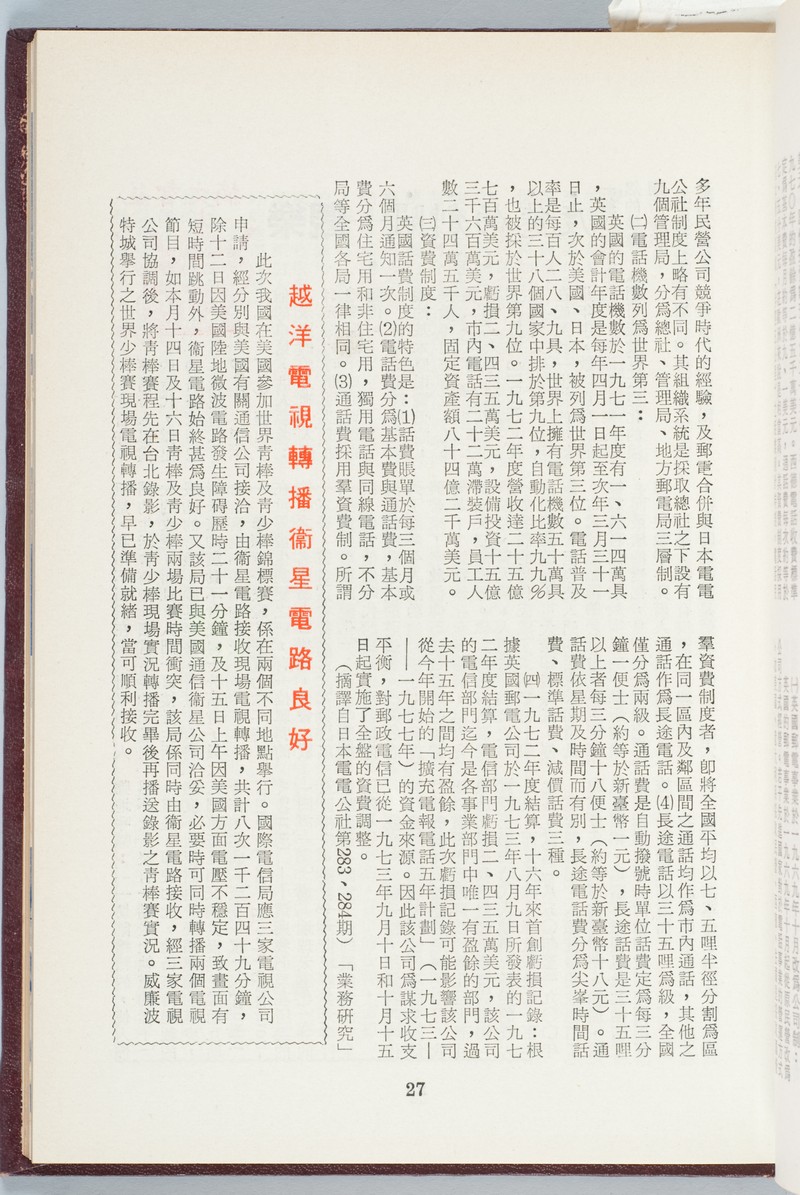 多年民營公司競爭時代的經驗，及郵電合併與日本電電
公社制度上略有不同。其組織系統是採取總社之下設有
九個管理局，分爲總社、管理局、地方郵電局三層制。
㈡電話機數列爲世界第三：
英國的電話機數於一九七一年度有一、六一四萬具
，英國的會計年度是每年四月一日起至次年三月三十一
日止，次於美國、日本，被列爲世界第三位。電話普及
率是每百人二八、九具，世界上擁有電話機數五十萬具
以上的三十八個國家中排於第九位，自動化比率九九％
，也被採於世界第九位。一九七二年度營收達二十五億
七百萬美元，虧損二、四三五萬美元，設備投資十五億
三千六百萬美元，市內電話有二十二萬滯裝戶，員工人
數二十四萬五千人，固定資產額八十四億二千萬美元。
㈢資費制度：
英國話費制度的特色是：⑴話費賬單於每三個月或
六個月通知一次。⑵電話費分爲基本費與通話費，基本
費分爲住宅用和非住宅用，獨用電話與同線電話，不分
局等全國各局一律相同。⑶通話費採用羣資費制。所謂
羣資費制度者，卽將全國平均以七、五哩半徑分割爲區
，在同一區內及鄰區間之通話均作爲市內通話，其他之
通話作爲長途電話。⑷長途電話以三十五哩爲級，全國
僅分爲兩級。通話費是自動撥號時單位話費定爲每三分
鐘一便士（約等於新臺幣一元），長途話費是三十五哩
以上者每三分鐘十八便士（約等於新臺幣十八元）。通
話費依星期及時間而有別，長途電話費分爲尖峯時間話
費、標準話費、減價話費三種。
㈣一九七二年度結算，十六年來首創虧損記錄：根
據英國郵電公司於一九七三年八月九日所發表的一九七
二年度結算，電信部門虧損二、四三五萬美元，該公司
的電信部門迄今是各事業部門中唯一有盈餘的部門，過
去十五年之間均有盈餘，此次虧損記錄可能影響該公司
從今年開始的「擴充電報電話五年計劃」（一九七三—
—一九七七年）的資金來源。因此該公司爲謀求收支
平衡，對郵政電信已從一九七三年九月十日和十月十五
日起實施了全盤的資費調整。
（摘譯自日本電電公社第283、284期）「業務研究」
越洋電視轉播衞星電路良好
此次我國在美國參加世界靑棒及靑少棒錦標賽，係在兩個不同地點舉行。國際電信局應三家電視公司
申請，經分別與美國有關通信公司接洽，由衞星電路接收現場電視轉播，共計八次一千二百四十九分鐘，
除十二日因美國陸地微波電路發生障碍歷時二十一分鐘，及十五日上午因美國方面電壓不穩定，致畫面有
短時間跳動外，衞星電路始終甚爲良好。又該局已與美國通信衞星公司洽妥，必要時可同時轉播兩個電視
節目，如本月十四日及十六日靑棒及靑少棒兩場比賽時間衝突，該局係同時由衞星電路接收，經三家電視
公司協調後，將靑棒賽程先在台北錄影，於靑少棒現場實況轉播完畢後再播送錄影之靑棒賽實況。威廉波
特城舉行之世界少棒賽現場電視轉播，早已準備就緖，當可順利接收。
27